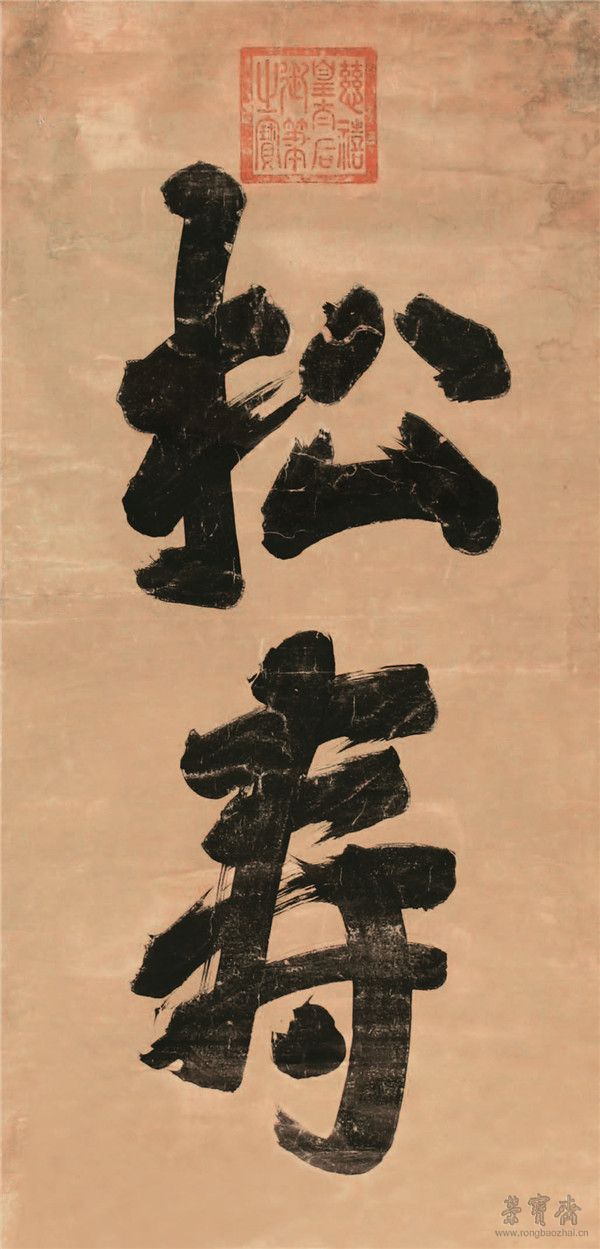 慈禧
皇太后
御筆
之寶
松寿
榮寶齋
www.rongbaozhai.cn